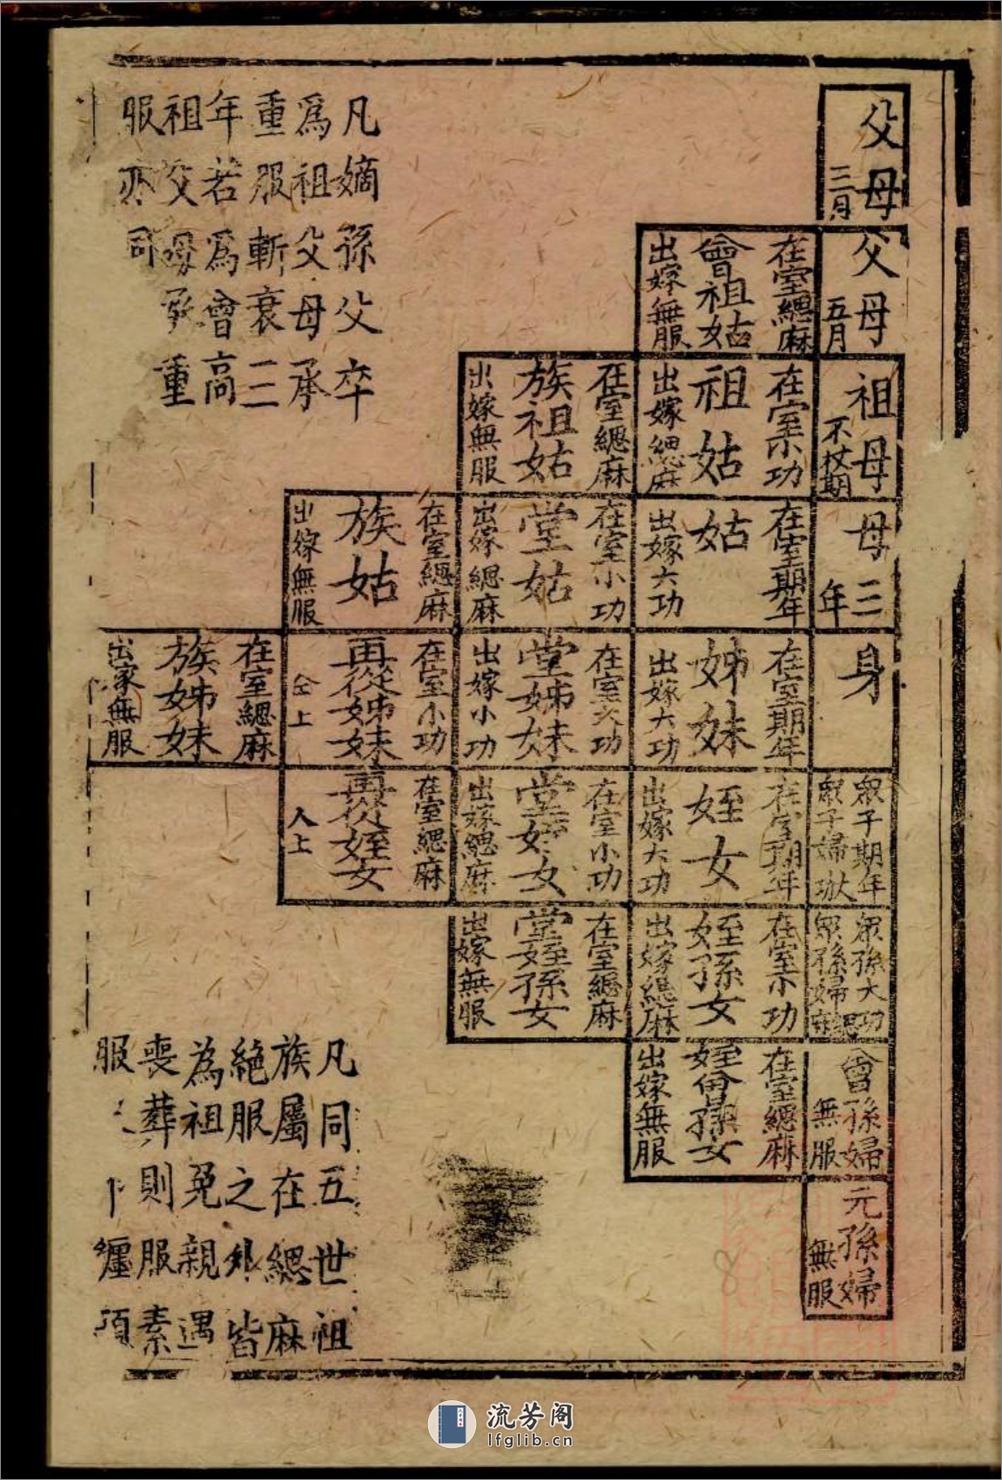 父母
三月
父母
五月
在室緦麻
曾祖姑
出嫁無服
祖母
不杖期
在室小功
祖姑
出嫁緦麻
在室緦麻
族祖姑
出嫁無服
母三
年
在室期年
姑
出嫁大功
在室小功
堂姑
出嫁緦麻
在室緦麻
族姑
出嫁無服
身
在室期年
姊妹
出嫁大功
在室大功
堂姊妹
出嫁小功
在室小功
再從姊妹
仝上
在室緦麻
族姊妹
出家無服
眾子期年
眾子婦
在室期年
姪女
出嫁大功
在室小功
堂姪女
出嫁緦麻
在室緦麻
再從姪女
人上
眾孫大功
眾孫婦緦麻
在室小功
姪孫女
出嫁緦麻
在室緦麻
堂姪孫女
出嫁無服
曾孫婦
無服
在室緦麻
姪曾孫女
出嫁無服
元孫婦
無服
凡嫡孫父卒
爲祖父母承
重服斬衰三
年若爲曾高
祖父母承重
服亦同
凡同五世祖
族屬在緦麻
絶服之外皆
為祖免親遇
喪葬則服素
服 纏項
流芳阁
lfglib.cn